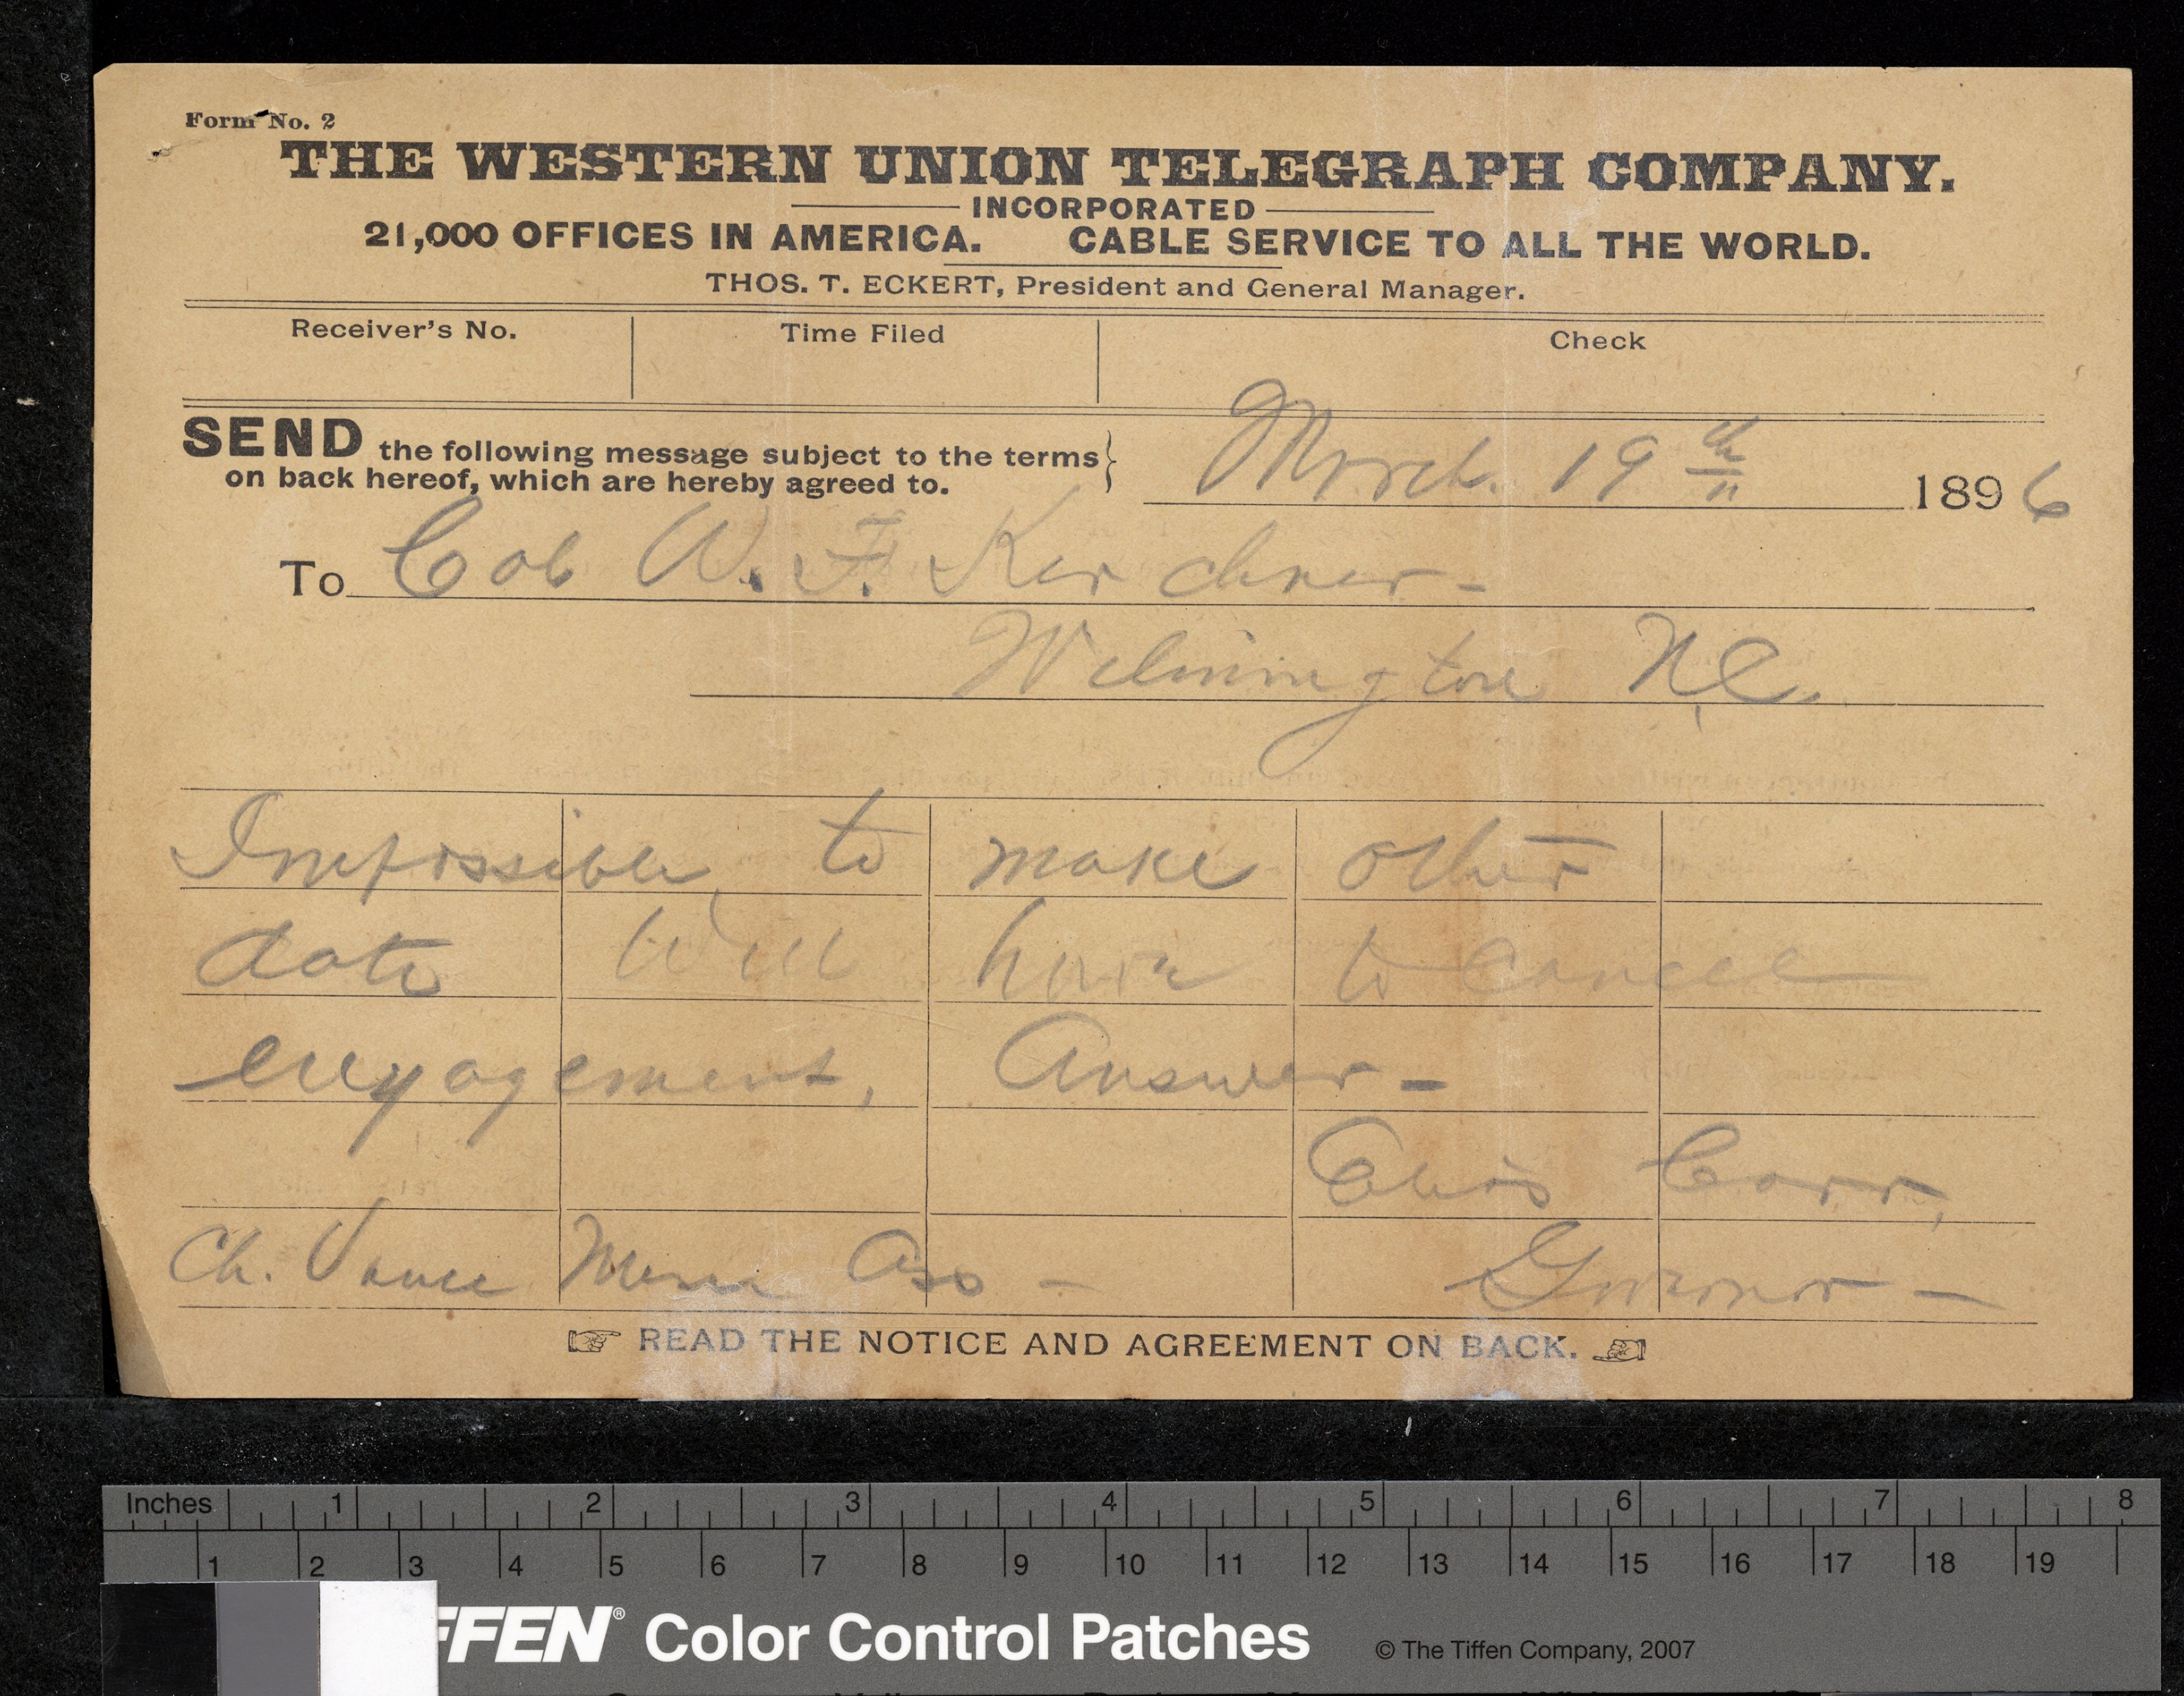 Form No. 2
THE WESTERN UNION TELEGRAPH COMPANY.
INCORPORATED
21,000 OFFICES IN AMERICA. CABLE SERVICE TO ALL THE WORLD.
THOS. T. ECKERT, President and General Manager.
Receiver's No. Time Filed Check
SEND the following message subject to the terms
on back hereof, which are hereby agreed to.
March 19th 1896
To Col W. F. Kerchner-
Wilmington N.C.
Impossible to make other
date Will have to cancel
engagement, Answer-
Elias Carr,
Ch. Vance Mem Aso - Governor-
READ THE NOTICE AND AGREEMENT ON BACK.
Inches 1 2 3 4 5 6 7 8
1 2 3 4 5 6 7 8 9 10 11 12 13 14 15 16 17 18 19
FFEN® Color Control Patches © The Tiffen Company, 2007